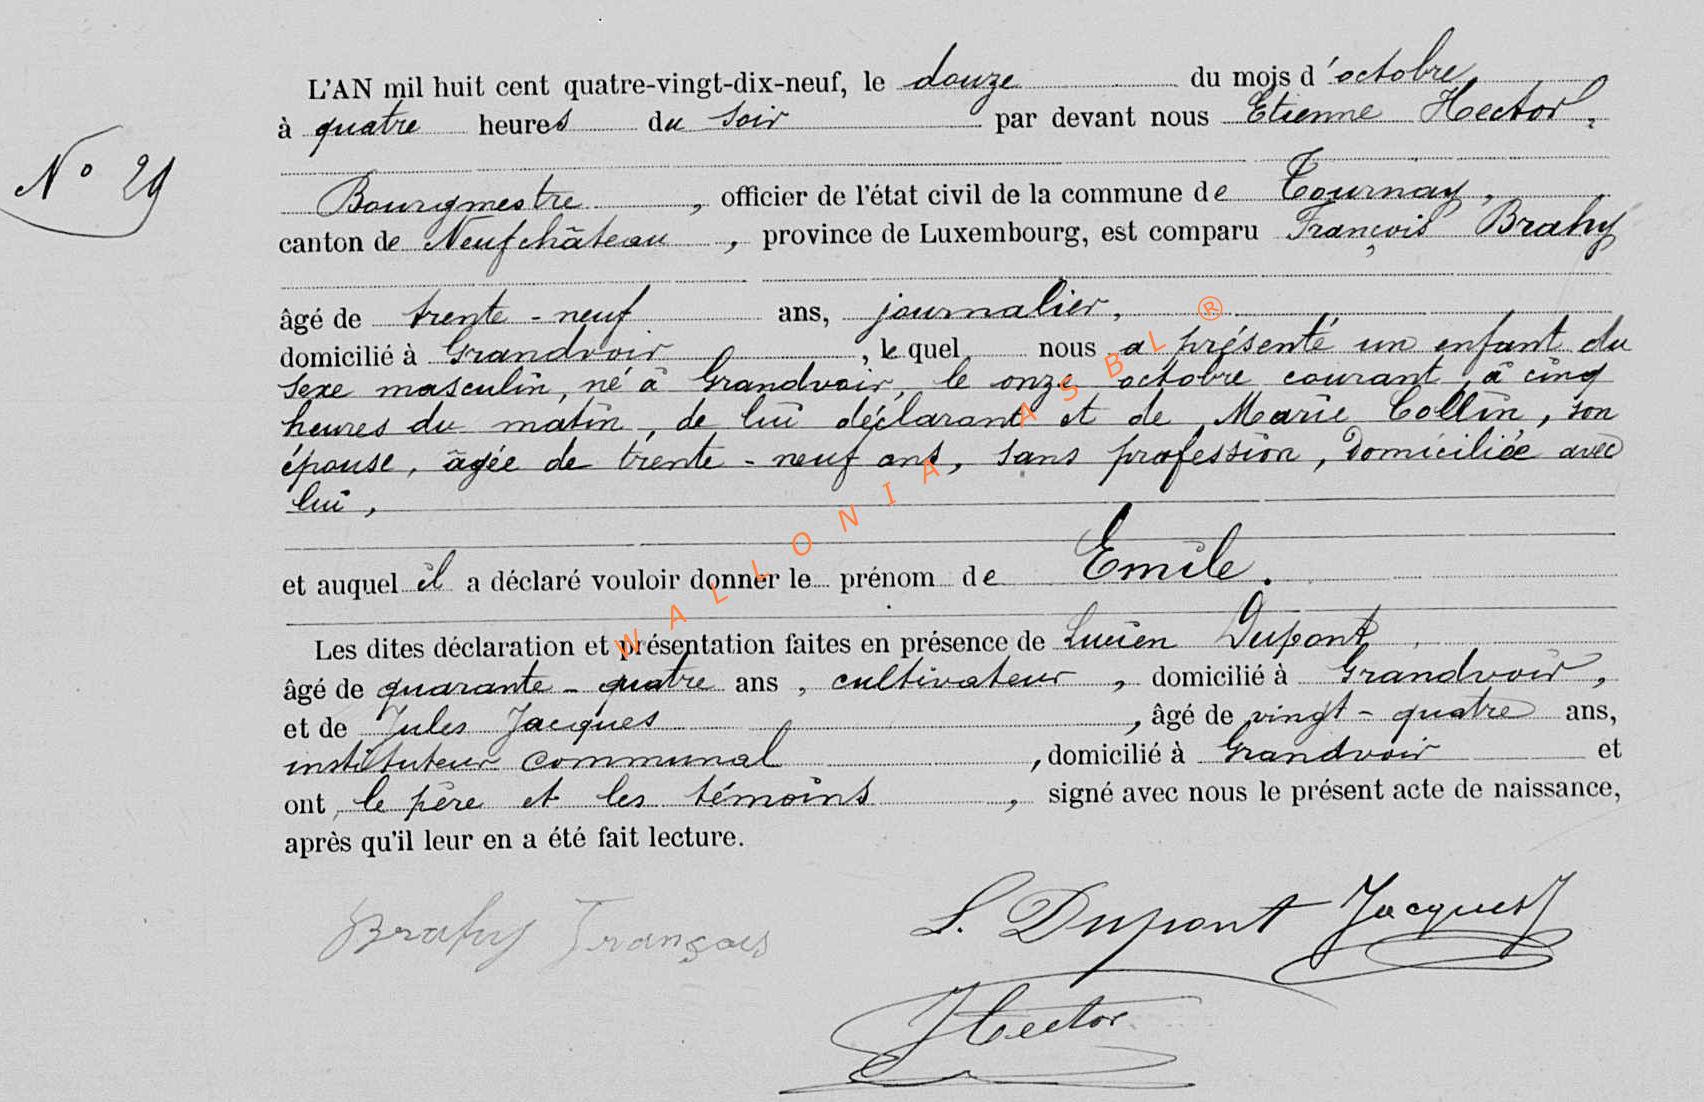 L'AN mil huit cent quatre-vingt-dix-neuf, le douze du mois d'octobre
à quatre heures du soir par devant nous Etienne Hector,
N° 29
Bourgmestre, officier de l'état civil de la commune de Tournay,
canton de Neufchâteau, province de Luxembourg, est comparu François Brahy
âgé de trente-neuf ans, journalier,
domicilié à Grandvoir, lequel nous a présenté un enfant du
sexe masculin, né à Grandvoir, le onze octobre courant, à cinq
heures du matin, de lui déclarant et de Marie Collin, son
épouse, âgée de trente-neuf ans, sans profession, domiciliée avec
lui,
et auquel il a déclaré vouloir donner le prénom de Emile.
Les dites déclaration et présentation faites en présence de Lucien Dupont
âgé de quarante-quatre ans, cultivateur, domicilié à Grandvoir,
et de Jules Jacques, âgé de vingt-quatre ans,
instituteur communal, domicilié à Grandvoir et
ont le père et les témoins, signé avec nous le présent acte de naissance,
après qu'il leur en a été fait lecture.
Brahy François L. Dupont Jacques J
Hector
WALLONIA ASBL ®